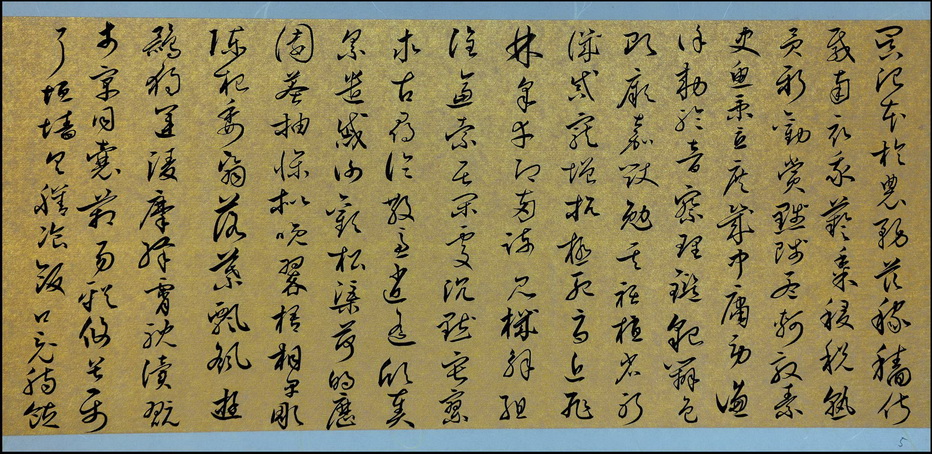 冥治本於農務茲稼穡俶
載南畝我藝黍稷稅熟
貢新勸賞黜陟孟軻敦素
史魚秉直庶幾中庸勞謙
謹勅聆音察理鑑貌辨色
貽厥嘉猷勉其祗植省躬
譏誡寵增抗極殆辱近恥
林皋幸即兩疏見機解組
誰逼索居閑處沉默寂寥
求古尋論散慮逍遙欣奏
累遣慼謝歡招渠荷的歷
園莽抽條枇晚翠梧桐早彫
陳根委翳落葉飄颻遊
鵾獨運凌摩絳霄耽讀翫
市寓目囊箱易輶攸畏屬
耳垣墻具膳飡飯口充腸飽
5